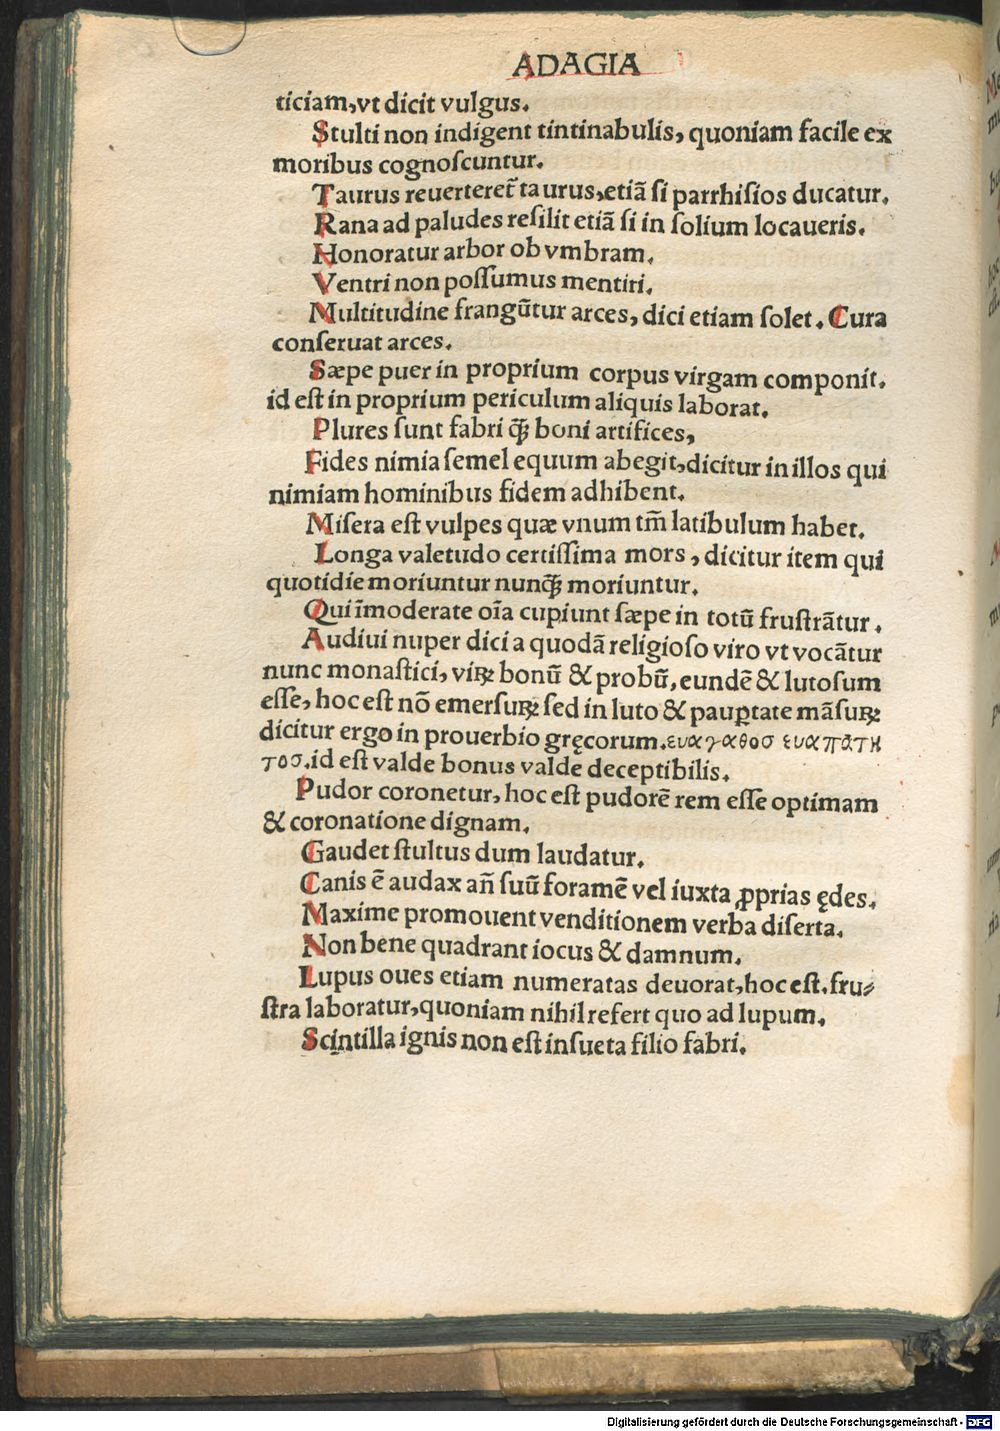 ADAGIA
ticiam, vt dicit vulgus.
Stulti non indigent tintinabulis, quoniam facile ex
moribus cognoſcuntur.
Taurus reuerteret᷑ taurus, etiã ſi parrhiſios ducatur.
Rana ad paludes reſilit etiã ſi in ſolium locaueris.
Honoratur arbor ob vmbram.
Ventri non poſſumus mentiri.
Multitudine frangũtur arces, dici etiam ſolet. Cura
conſeruat arces.
Sæpe puer in proprium corpus virgam componit.
id eſt in proprium periculum aliquis laborat.
Plures ſunt fabri q̃ꝫ boni artifices,
Fides nimia ſemel equum abegit, dicitur in illos qui
nimiam hominibus fidem adhibent.
Miſera eſt vulpes quæ vnum tm̃ latibulum habet.
Longa valetudo certiſſima mors, dicitur item qui
quotidie moriuntur nunq̃ꝫ moriuntur.
Qui ĩmoderate oĩa cupiunt ſæpe in totũ fruſtrãtur.
Audiui nuper dici a quodã religioſo viro vt vocãtur
nunc monaſtici, viꝝ bonũ & probũ, eundẽ & lutoſum
eſſe, hoc eſt nõ emerſuꝝ ſed in luto & paup̱tate mãſuꝝ
dicitur ergo in prouerbio gręcorum. ευαγαθοσ ευαπατη
τοσ. id eſt valde bonus valde deceptibilis.
Pudor coronetur, hoc eſt pudorẽ rem eſſe optimam
& coronatione dignam.
Gaudet ſtultus dum laudatur.
Canis ẽ audax añ ſuũ foramẽ vel iuxta ꝓprias ędes.
Maxime promouent venditionem verba diſerta.
Non bene quadrant iocus & damnum.
Lupus oues etiam numeratas deuorat, hoc eſt. fru⸗
ſtra laboratur, quoniam nihil refert quo ad lupum.
Scintilla ignis non eſt inſueta filio fabri.
Digitalisierung gefördert durch die Deutsche Forschungsgemeinschaft - DFG